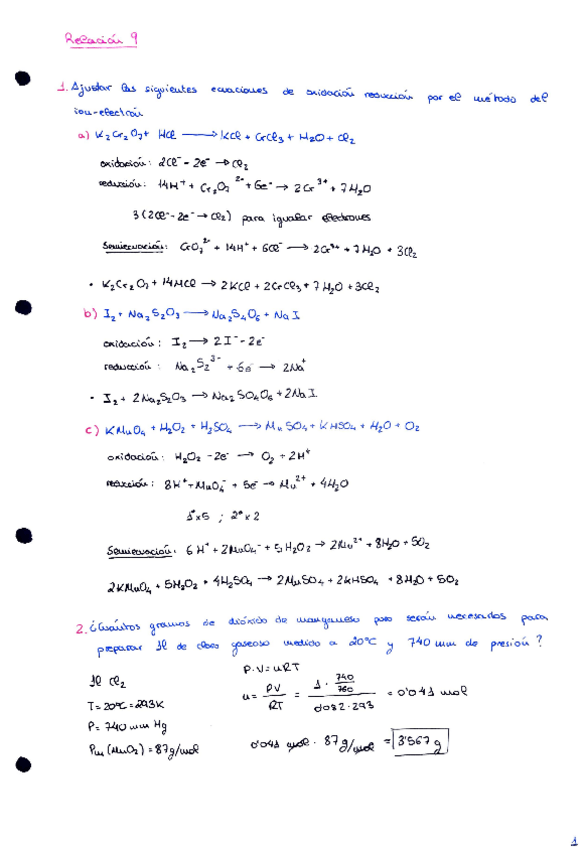 Relación 9
1. Ajustar las siguientes ecuaciones de oxidación reducción por el método del
ion-electrón
a) K₂Cr₂O₇ + HCl ⟶ KCl + CrCl₃ + H₂O + Cl₂
oxidación: 2Cl⁻ - 2e⁻ → Cl₂
reducción: 14H⁺ + Cr₂O₇²⁻ + 6e⁻ → 2Cr³⁺ + 7H₂O
3(2Cl⁻ - 2e⁻ → Cl₂) para igualar electrones
Semiecuación: CrO₇²⁻ + 14H⁺ + 6Cl⁻ ⟶ 2Cr³⁺ + 7H₂O + 3Cl₂
• K₂Cr₂O₇ + 14HCl → 2KCl + 2CrCl₃ + 7H₂O + 3Cl₂
b) I₂ + Na₂S₂O₃ ⟶ Na₂S₄O₆ + NaI
oxidación: I₂ → 2I⁻ - 2e⁻
reducción: Na₂S₂³⁻ + 6e⁻ → 2Na⁺
• I₂ + 2Na₂S₂O₃ → Na₂SO₄O₆ + 2NaI.
c) KMnO₄ + H₂O₂ + H₂SO₄ ⟶ MnSO₄ + KHSO₄ + H₂O + O₂
oxidación: H₂O₂ - 2e⁻ → O₂ + 2H⁺
reducción: 8H⁺ + MnO₄⁻ + 5e⁻ → Mn²⁺ + 4H₂O
1ª x 5 ; 2ª x 2
Semiecuación: 6H⁺ + 2MnO₄⁻ + 5H₂O₂ → 2Mn²⁺ + 8H₂O + 5O₂
2KMnO₄ + 5H₂O₂ + 4H₂SO₄ → 2MnSO₄ + 2KHSO₄ + 8H₂O + 5O₂
2. ¿Cuántos gramos de dióxido de manganeso puro serán necesarios para
preparar 1l de cloro gaseoso medido a 20°C y 740 mm de presión?
P·V = nRT
1l Cl₂
T = 20°C = 293K
P = 740 mm Hg
Pm (MnO₂) = 87g/mol
n = PV / RT = (1 · 740/760) / (0'082·293) = 0'041 mol
0'041 mol · 87 g/mol = 3'567 g
1